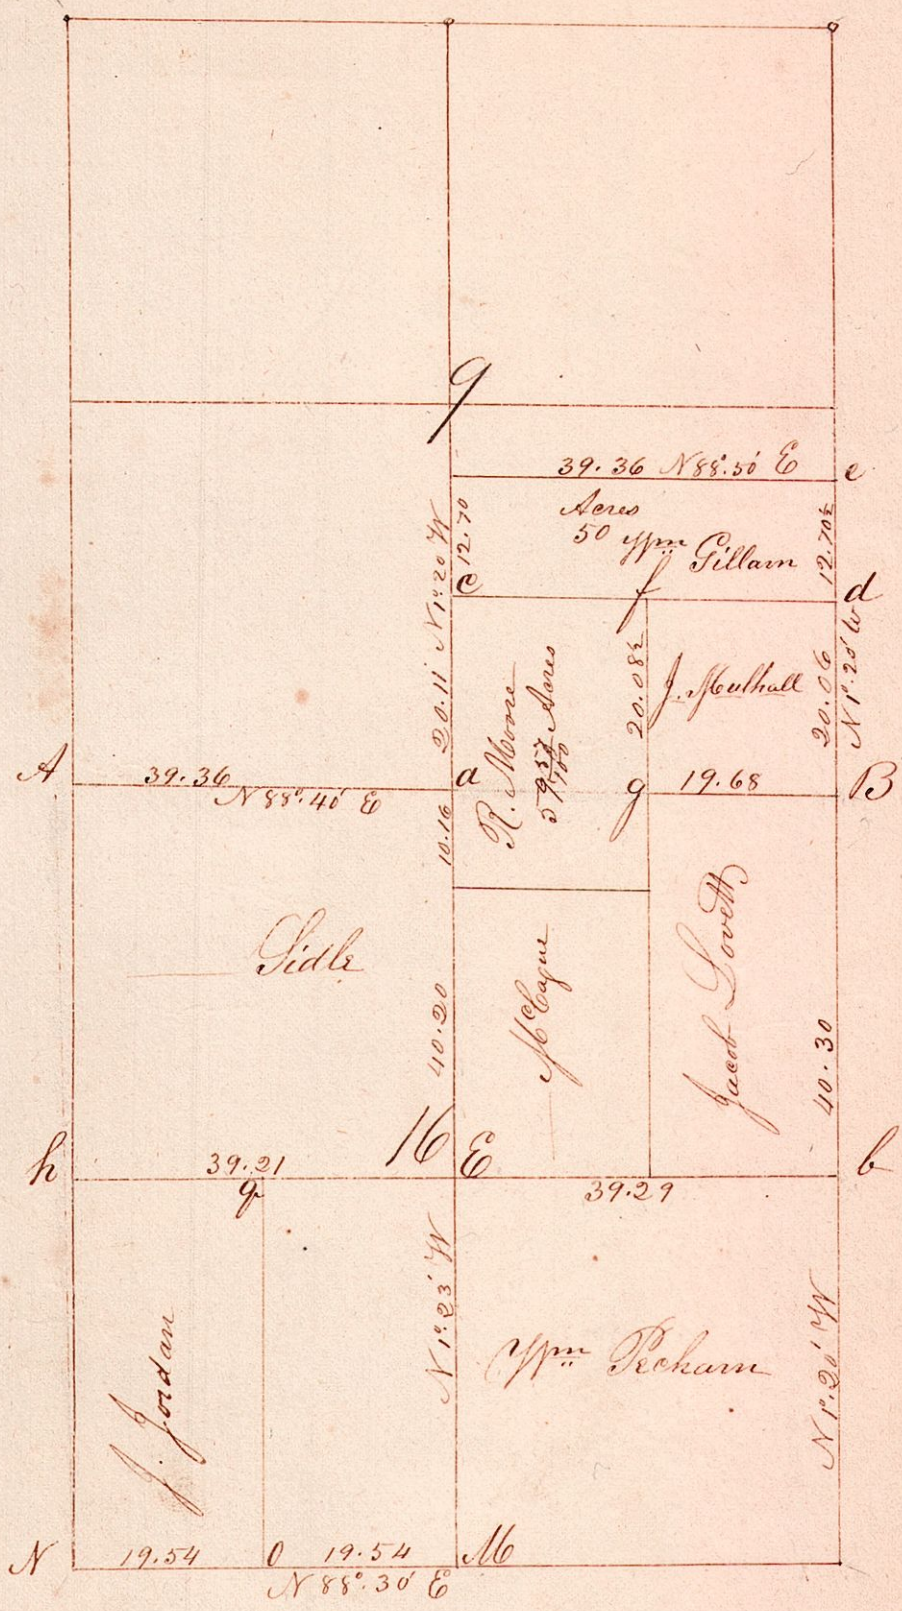 9
39.36 N 88°.50' E
e
Acres
50 Wm Gillam
12.70
12.70½
c
f
d
N 1°.20' W
20.11
R. Moore
59 57/100 Acres
20.08½
J. Mulhall
20.06
N 1°.20' W
A
39.36
N 88°.40' E
a
g
19.68
B
10.16
Sidle
40.20
McCague
Jacob Lovett
40.30
h
39.21
16
E
39.29
b
q
N 1°.23' W
J. Jordan
Wm Peckam
N 1°.20' W
N
19.54
O
19.54
M
N 88°.30' E